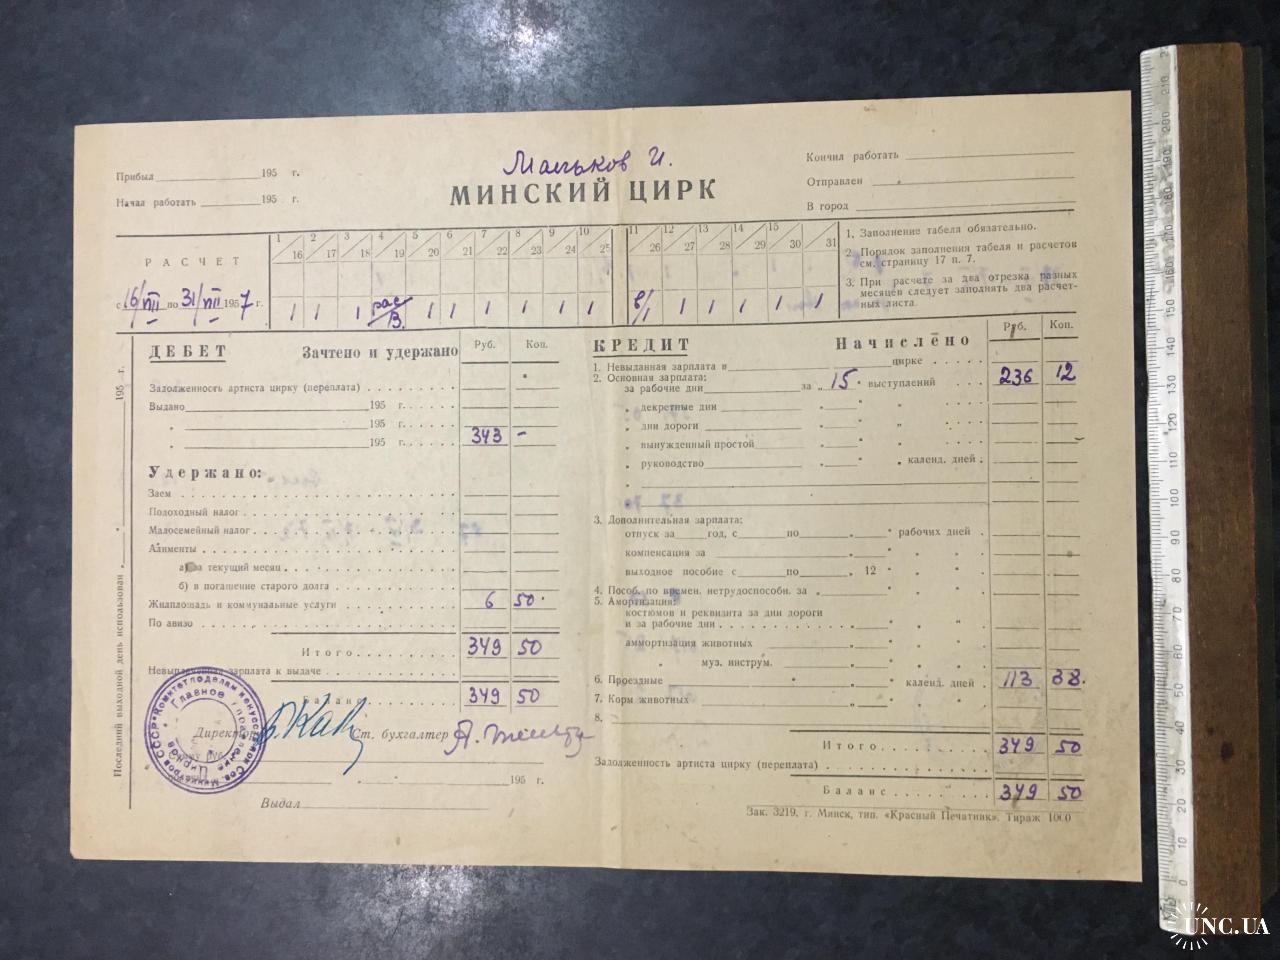 Мальков И.
МИНСКИЙ ЦИРК
Прибыл 195 г.
Начал работать 195 г.
Кончил работать
Отправлен
В город
РАСЧЕТ
с 16/VII по 31/VII 1957 г.
1 2 3 4 5 6 7 8 9 10 11 12 13 14 15
16 17 18 19 20 21 22 23 24 25 26 27 28 29 30 31
1 1 1 1 1 1 1 1 1 1 в/1 1 1 1 1 1
1. Заполнение табеля обязательно.
2. Порядок заполнения табеля и расчетов
см. страницу 17 п. 7.
3. При расчете за два отрезка разных
месяцев следует заполнять два расчет-
ных листа.
ДЕБЕТ Зачтено и удержано Руб. Коп.
Задолженность артиста цирку (переплата)
Выдано 195 г.
„ 195 г.
„ 195 г. 343 –
Удержано:
Заем
Подоходный налог
Малосемейный налог
Алименты
а) за текущий месяц
б) в погашение старого долга
Жилплощадь и коммунальные услуги 6 50
По авизо
Итого 349 50
зарплата к выдаче
Баланс 349 50
Директор Ст. бухгалтер
195 г.
Выдал
Последний выходной день использован „ 195 г.
Главное управление цирков
КРЕДИТ Начислено Руб. Коп.
1. Невыданная зарплата в цирке
2. Основная зарплата:
за рабочие дни за „ 15 " выступлений 236 12
„ декретные дни „ " "
„ дни дороги „ " "
„ вынужденный простой „ " "
„ руководство „ " „ календ. дней
3. Дополнительная зарплата:
отпуск за год, с по „ " рабочих дней
компенсация за „ " " "
выходное пособие с по „ 12 " " "
4. Пособ. по времен. нетрудоспособн. за „ " " "
5. Амортизация:
костюмов и реквизита за дни дороги
и за рабочие дни „ " "
аммортизация животных „ " " "
„ муз. инструм. „ " " "
6. Проездные " „ " календ. дней 113 38
7. Корм животных " „ " " "
8.
Итого 349 50
Задолженность артиста цирку (переплата)
Баланс 349 50
Зак. 3219, г. Минск, тип. «Красный Печатник». Тираж 1000
UNC.UA